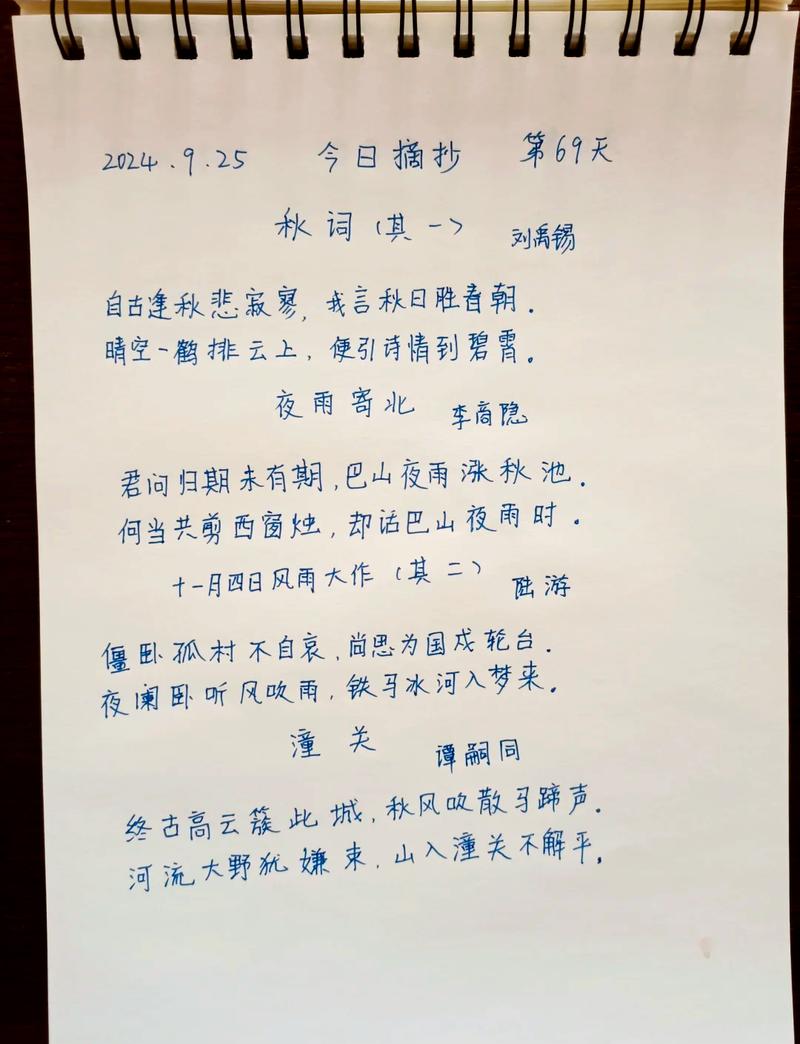 2024.9.25 今日摘抄 第69天
秋词(其一) 刘禹锡
自古逢秋悲寂寥,我言秋日胜春朝.
晴空一鹤排云上,便引诗情到碧霄。
夜雨寄北 李商隐
君问归期未有期,巴山夜雨涨秋池.
何当共剪西窗烛,却话巴山夜雨时.
十一月四日风雨大作(其二) 陆游
僵卧孤村不自哀,尚思为国戍轮台.
夜阑卧听风吹雨,铁马冰河入梦来。
潼关 谭嗣同
终古高云簇此城,秋风吹散马蹄声.
河流大野犹嫌束,山入潼关不解平。